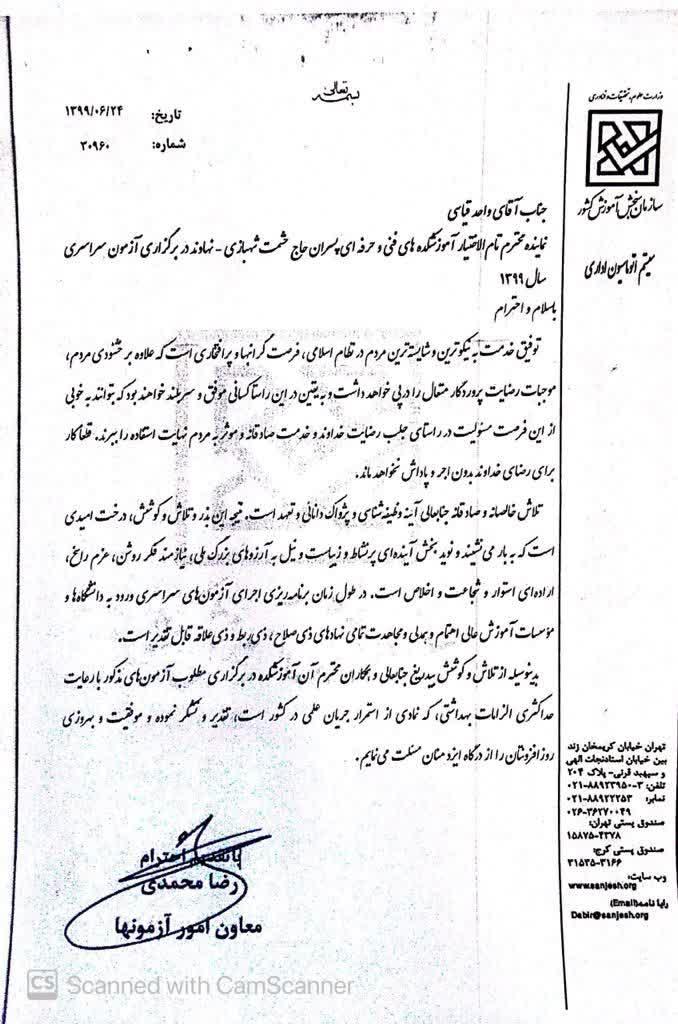 بسمه تعالی
تاریخ: ۱۳۹۹/۰۶/۲۴
شماره: ۳۰۹۶۰
وزارت علوم، تحقیقات و فناوری
سازمان سنجش آموزش کشور
سیستم اتوماسیون اداری
جناب آقای واحد قیاسی
نماینده محترم تام الاختیار آموزشکده های فنی و حرفه ای پسران حاج حشمت شهبازی - نهاوند در برگزاری آزمون سراسری
سال ۱۳۹۹
باسلام و احترام
توفیق خدمت به نیکوترین و شایسته‌ترین مردم در نظام اسلامی، فرصت گرانبها و پرافتخاری است که علاوه بر خشنودی مردم،
موجبات رضایت پروردگار متعال را در پی خواهد داشت و به یقین در این راستا کسانی موفق و سربلند خواهند بود که بتوانند به خوبی
از این فرصت مسئولیت در راستای جلب رضایت خداوند و خدمت صادقانه و موثر به مردم نهایت استفاده را ببرند. قطعا کار
برای رضای خداوند بدون اجر و پاداش نخواهد ماند.
تلاش خالصانه و صادقانه جنابعالی آینه وظیفه‌شناسی و پژواک دانائی و تعهد است. نتیجه این بذر و تلاش و کوشش، درخت امیدی
است که به بار می‌نشیند و نوید بخش آینده‌ای پرنشاط و زیباست و نیل به آرزوهای بزرگ ملی، نیازمند فکر روشن، عزم راسخ،
اراده‌ای استوار و شجاعت و اخلاص است. در طول زمان برنامه‌ریزی اجرای آزمون‌های سراسری ورود به دانشگاه‌ها و
مؤسسات آموزش عالی اهتمام و همدلی و مجاهدت تمامی نهادهای ذی صلاح، ذی ربط و ذی علاقه قابل تقدیر است.
بدینوسیله از تلاش و کوشش بیدریغ جنابعالی و همکاران محترم آن آموزشکده در برگزاری مطلوب آزمون‌های مذکور با رعایت
حداکثری الزامات بهداشتی، که نمادی از استمرار جریان علمی در کشور است، تقدیر و تشکر نموده و موفقیت و بهروزی
روزافزونتان را از درگاه ایزد منان مسئلت می‌نمایم.
باتقدیم احترام
رضا محمدی
معاون امور آزمونها
تهران خیابان کریمخان زند
بین خیابان استادنجات الهی
و سپهبد قرنی- پلاک ۲۰۴
تلفن: ۳-۸۸۹۲۳۹۵۰-۰۲۱
نمابر: ۸۸۹۲۲۲۵۳-۰۲۱
۰۲۶-۳۶۲۷۰۰۴۹
صندوق پستی تهران:
۱۵۸۷۵-۴۳۷۸
صندوق پستی کرج:
۳۱۵۳۵-۳۱۶۶
وب سایت:
www.sanjesh.org
رایا نامه(Email)
Dabir@sanjesh.org
CS Scanned with CamScanner